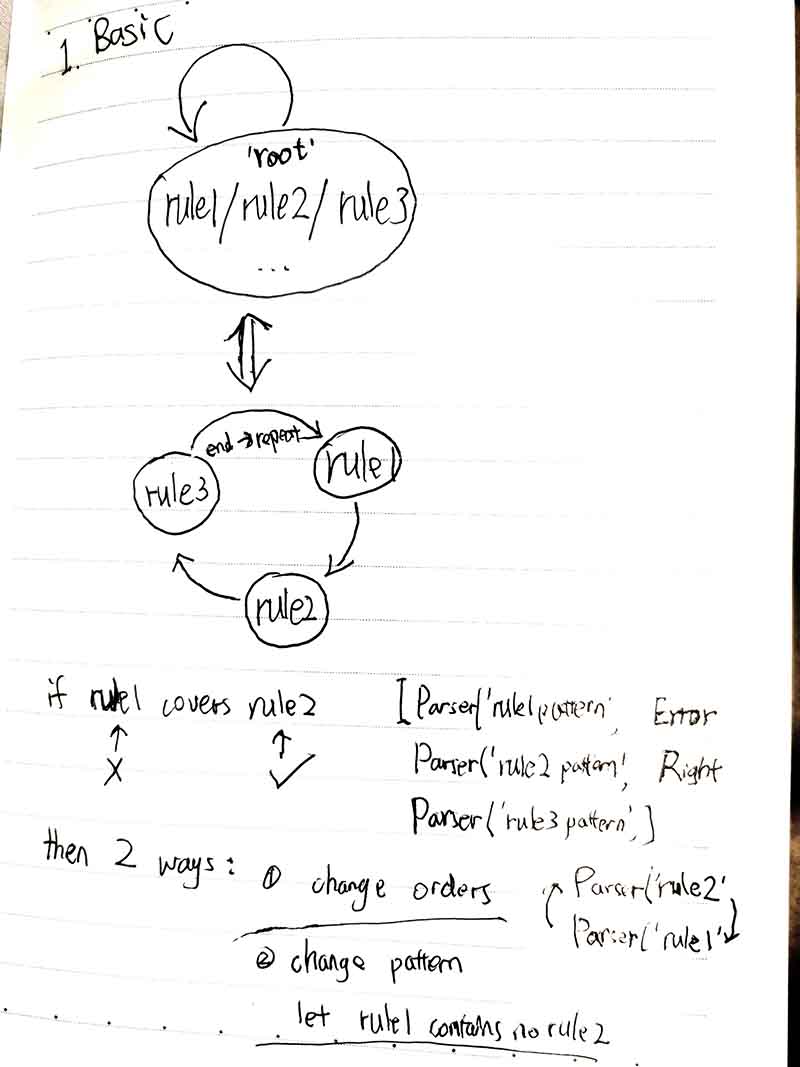 1. Basic
'root'
rule1/rule2/rule3
...
end → repeat
rule1
rule3
rule2
if rule1 covers rule2
X ✓
[Parser('rule1 pattern', Error
Parser('rule2 pattern', Right
Parser('rule3 pattern',]
then 2 ways: ① change orders
Parser('rule2'
Parser('rule1'
② change pattern
let rule1 contains no rule2